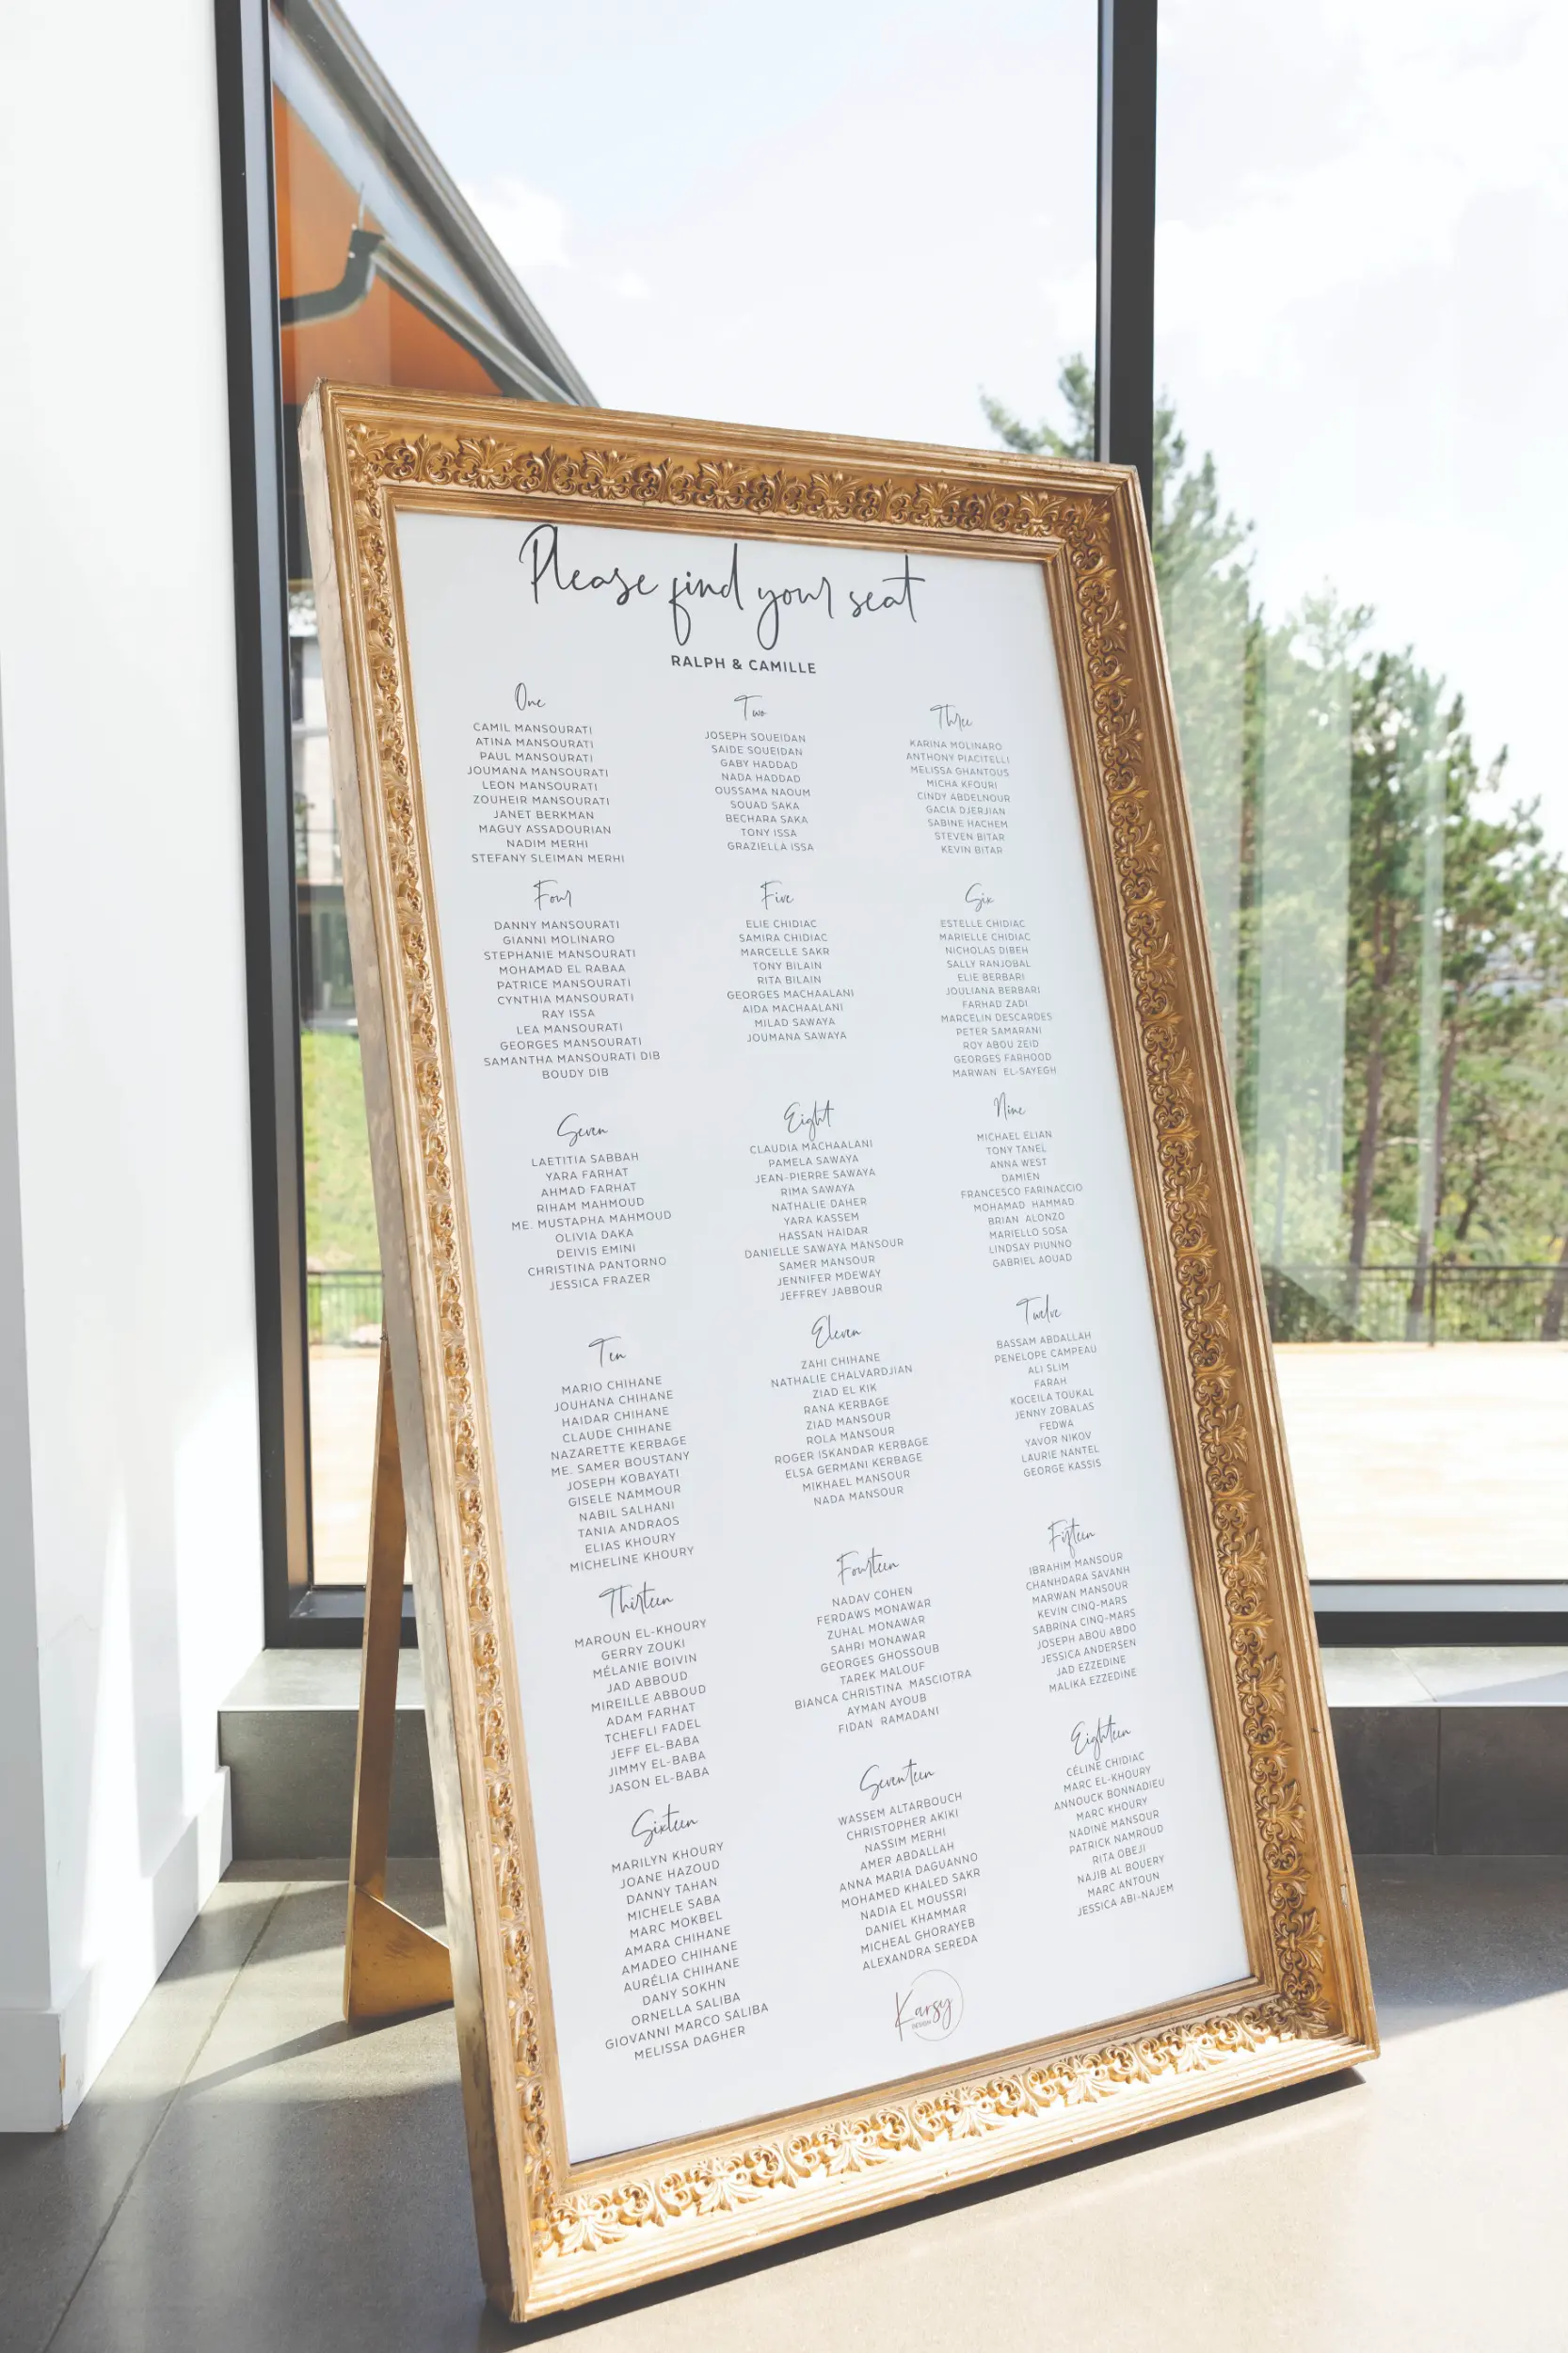 Please find your seat
RALPH & CAMILLE
One
CAMIL MANSOURATI
ATINA MANSOURATI
PAUL MANSOURATI
JOUMANA MANSOURATI
LEON MANSOURATI
ZOUHEIR MANSOURATI
JANET BERKMAN
MAGUY ASSADOURIAN
NADIM MERHI
STEFANY SLEIMAN MERHI
Two
JOSEPH SOUEIDAN
SAIDE SOUEIDAN
GABY HADDAD
NADA HADDAD
OUSSAMA NAOUM
SOUAD SAKA
BECHARA SAKA
TONY ISSA
GRAZIELLA ISSA
Three
KARINA MOLINARO
ANTHONY PIACITELLI
MELISSA GHANTOUS
MICHA KFOURI
CINDY ABDELNOUR
GACIA DJERJIAN
SABINE HACHEM
STEVEN BITAR
KEVIN BITAR
Four
DANNY MANSOURATI
GIANNI MOLINARO
STEPHANIE MANSOURATI
MOHAMAD EL RABAA
PATRICE MANSOURATI
CYNTHIA MANSOURATI
RAY ISSA
LEA MANSOURATI
GEORGES MANSOURATI
SAMANTHA MANSOURATI DIB
BOUDY DIB
Five
ELIE CHIDIAC
SAMIRA CHIDIAC
MARCELLE SAKR
TONY BILAIN
RITA BILAIN
GEORGES MACHAALANI
AIDA MACHAALANI
MILAD SAWAYA
JOUMANA SAWAYA
Six
ESTELLE CHIDIAC
MARIELLE CHIDIAC
NICHOLAS DIBEH
SALLY RANJOBAL
ELIE BERBARI
JOULIANA BERBARI
FARHAD ZADI
MARCELIN DESCARDES
PETER SAMARANI
ROY ABOU ZEID
GEORGES FARHOOD
MARWAN EL-SAYEGH
Seven
LAETITIA SABBAH
YARA FARHAT
AHMAD FARHAT
RIHAM MAHMOUD
ME. MUSTAPHA MAHMOUD
OLIVIA DAKA
DEIVIS EMINI
CHRISTINA PANTORNO
JESSICA FRAZER
Eight
CLAUDIA MACHAALANI
PAMELA SAWAYA
JEAN-PIERRE SAWAYA
RIMA SAWAYA
NATHALIE DAHER
YARA KASSEM
HASSAN HAIDAR
DANIELLE SAWAYA MANSOUR
SAMER MANSOUR
JENNIFER MDEWAY
JEFFREY JABBOUR
Nine
MICHAEL ELIAN
TONY TANEL
ANNA WEST
DAMIEN
FRANCESCO FARINACCIO
MOHAMAD HAMMAD
BRIAN ALONZO
MARIELLO SOSA
LINDSAY PIUNNO
GABRIEL AOUAD
Ten
MARIO CHIHANE
JOUHANA CHIHANE
HAIDAR CHIHANE
CLAUDE CHIHANE
NAZARETTE KERBAGE
ME. SAMER BOUSTANY
JOSEPH KOBAYATI
GISELE NAMMOUR
NABIL SALHANI
TANIA ANDRAOS
ELIAS KHOURY
MICHELINE KHOURY
Eleven
ZAHI CHIHANE
NATHALIE CHALVARDJIAN
ZIAD EL KIK
RANA KERBAGE
ZIAD MANSOUR
ROLA MANSOUR
ROGER ISKANDAR KERBAGE
ELSA GERMANI KERBAGE
MIKHAEL MANSOUR
NADA MANSOUR
Twelve
BASSAM ABDALLAH
PENELOPE CAMPEAU
ALI SLIM
FARAH
KOCEILA TOUKAL
JENNY ZOBALAS
FEDWA
YAVOR NIKOV
LAURIE NANTEL
GEORGE KASSIS
Thirteen
MAROUN EL-KHOURY
GERRY ZOUKI
MÉLANIE BOIVIN
JAD ABBOUD
MIREILLE ABBOUD
ADAM FARHAT
TCHEFLI FADEL
JEFF EL-BABA
JIMMY EL-BABA
JASON EL-BABA
Fourteen
NADAV COHEN
FERDAWS MONAWAR
ZUHAL MONAWAR
SAHRI MONAWAR
GEORGES GHOSSOUB
TAREK MALOUF
BIANCA CHRISTINA MASCIOTRA
AYMAN AYOUB
FIDAN RAMADANI
Fifteen
IBRAHIM MANSOUR
CHANHDARA SAVANH
MARWAN MANSOUR
KEVIN CINQ-MARS
SABRINA CINQ-MARS
JOSEPH ABOU ABDO
JESSICA ANDERSEN
JAD EZZEDINE
MALIKA EZZEDINE
Sixteen
MARILYN KHOURY
JOANE HAZOUD
DANNY TAHAN
MICHELE SABA
MARC MOKBEL
AMARA CHIHANE
AMADEO CHIHANE
AURÉLIA CHIHANE
DANY SOKHN
ORNELLA SALIBA
GIOVANNI MARCO SALIBA
MELISSA DAGHER
Seventeen
WASSEM ALTARBOUCH
CHRISTOPHER AKIKI
NASSIM MERHI
AMER ABDALLAH
ANNA MARIA DAGUANNO
MOHAMED KHALED SAKR
NADIA EL MOUSSRI
DANIEL KHAMMAR
MICHEAL GHORAYEB
ALEXANDRA SEREDA
Eighteen
CÉLINE CHIDIAC
MARC EL-KHOURY
ANNOUCK BONNADIEU
MARC KHOURY
NADINE MANSOUR
PATRICK NAMROUD
RITA OBEJI
NAJIB AL BOUERY
MARC ANTOUN
JESSICA ABI-NAJEM
Karsy
DESIGN